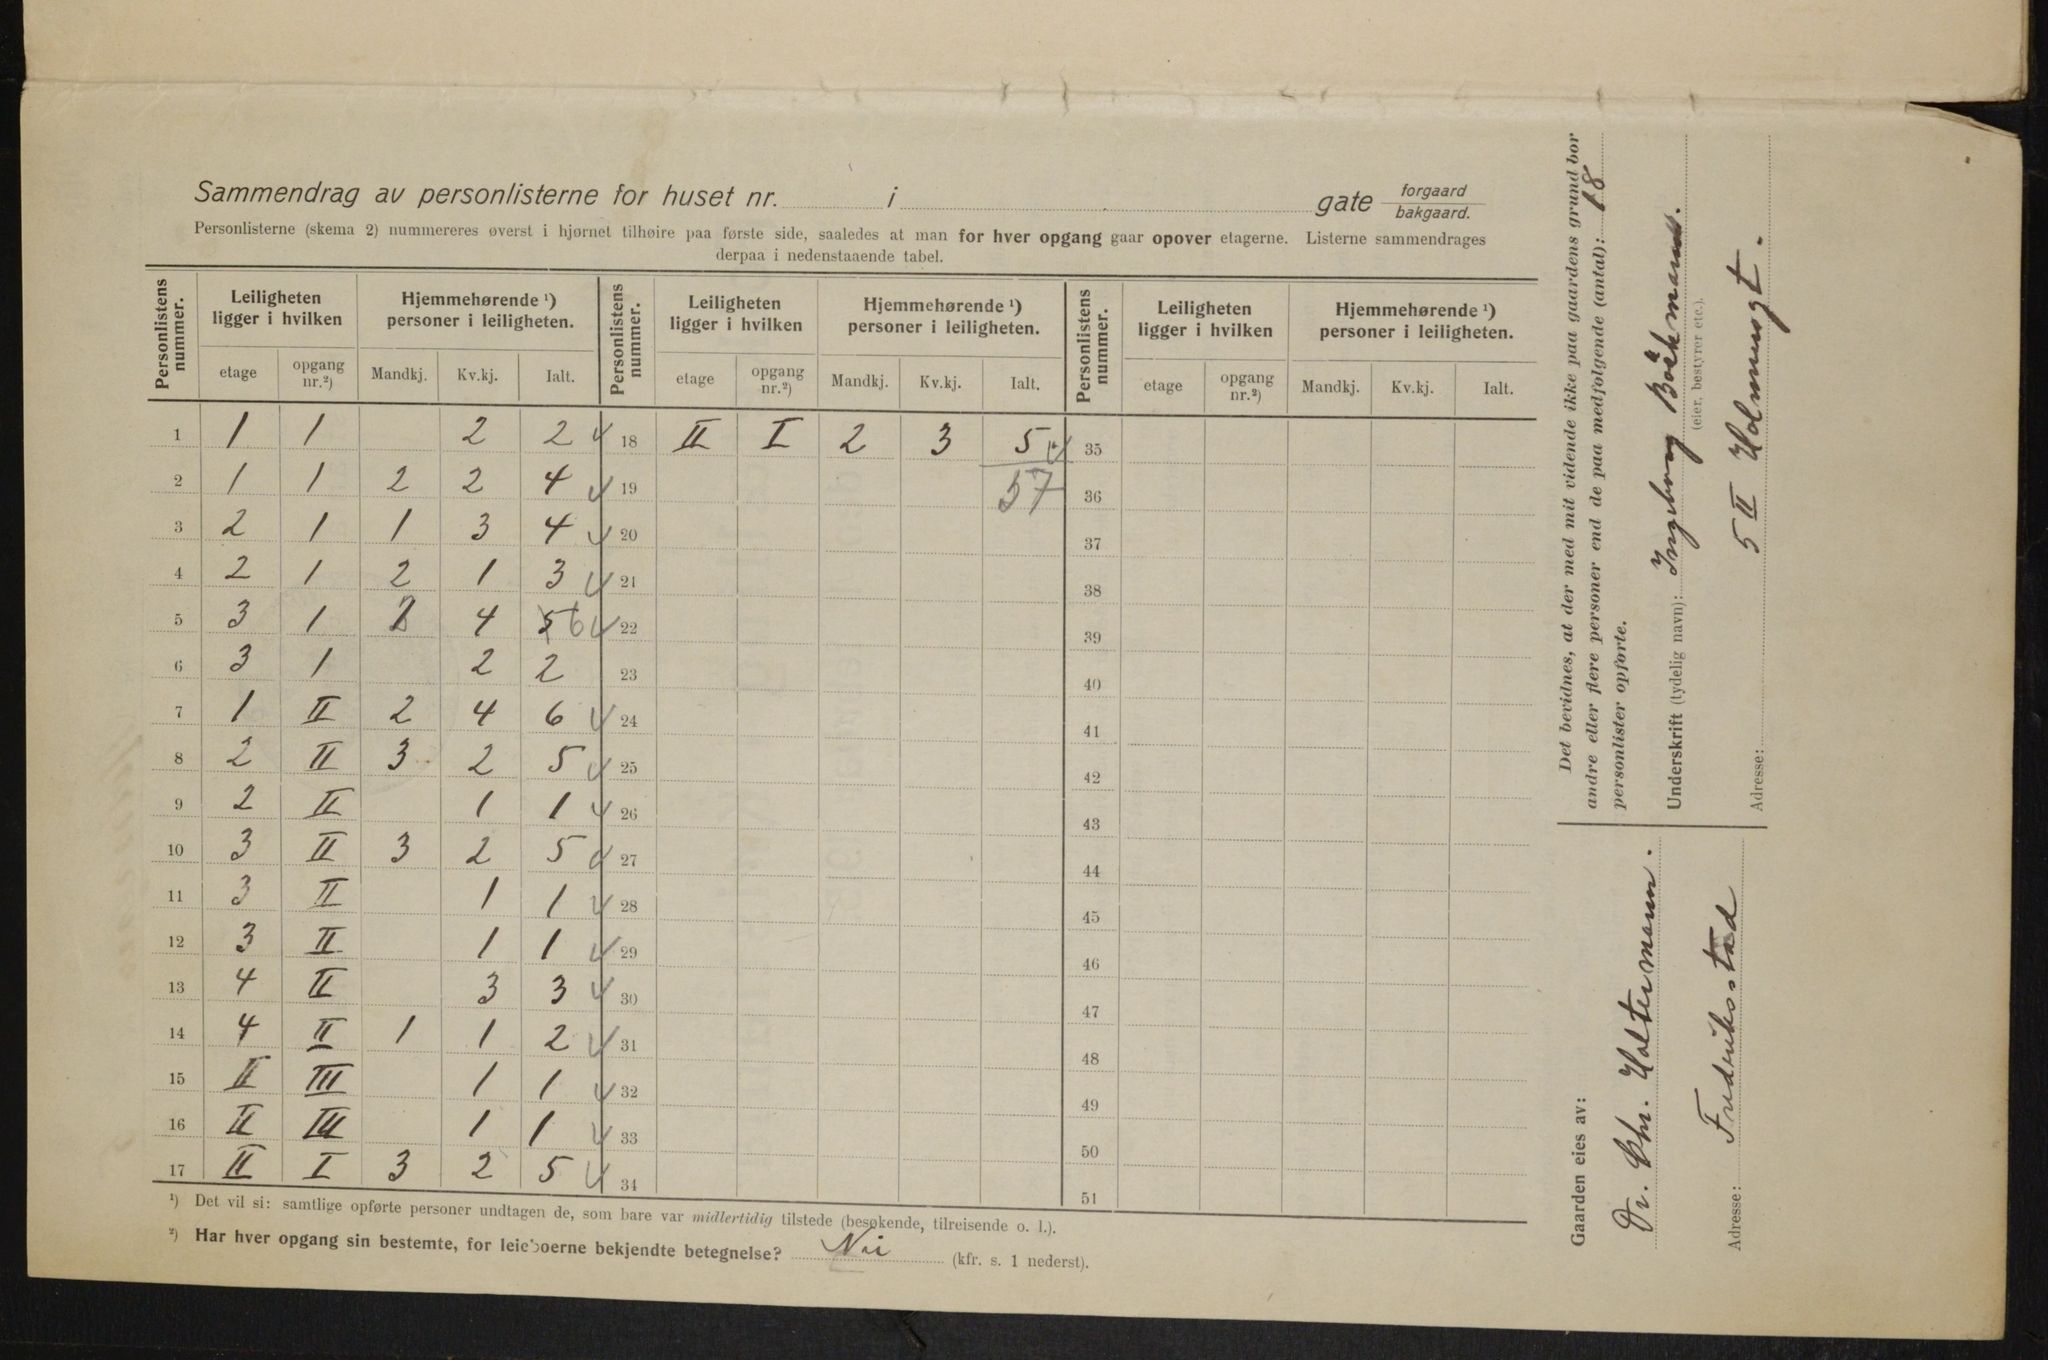 Sammendrag av personlisterne for huset nr. i gate forgaard
bakgaard.
Personlisterne (skema 2) nummereres øverst i hjørnet tilhøire paa første side, saaledes at man for hver opgang gaar opover etagerne. Listerne sammendrages
derpaa i nedenstaaende tabel.
Personlistens nummer. Leiligheten ligger i hvilken Hjemmehørende ¹) personer i leiligheten. Personlistens nummer. Leiligheten ligger i hvilken Hjemmehørende ¹) personer i leiligheten. Personlistens nummer. Leiligheten ligger i hvilken Hjemmehørende ¹) personer i leiligheten.
etage opgang nr.²) Mandkj. Kv.kj. Ialt. etage opgang nr.²) Mandkj. Kv.kj. Ialt. etage opgang nr.²) Mandkj. Kv.kj. Ialt.
1 1 1 2 2 18 II I 2 3 5 35
2 1 1 2 2 4 19 57 36
3 2 1 1 3 4 20 37
4 2 1 2 1 3 21 38
5 3 1 2 4 5 6 22 39
6 3 1 2 2 23 40
7 1 II 2 4 6 24 41
8 2 II 3 2 5 25 42
9 2 II 1 1 26 43
10 3 II 3 2 5 27 44
11 3 II 1 1 28 45
12 3 II 1 1 29 46
13 4 II 3 3 30 47
14 4 II 1 1 2 31 48
15 II III 1 1 32 49
16 II III 1 1 33 50
17 II I 3 2 5 34 51
¹) Det vil si: samtlige opførte personer undtagen de, som bare var midlertidig tilstede (besøkende, tilreisende o. l.).
²) Har hver opgang sin bestemte, for leieboerne bekjendte betegnelse? Nei (kfr. s. 1 nederst).
Det bevidnes, at der med mit vidende ikke paa gaardens grund bor
andre eller flere personer end de paa medfølgende (antal): 18
personlister opførte.
Underskrift (tydelig navn): Ingeborg Böckmann.
(eier, bestyrer etc.).
Adresse: 5 II Holmensgt.
Gaarden eies av:
Dr. Chr. Holtermann.
Adresse: Fredriksstad